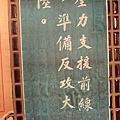 全力支援前線
準備反攻大
陸。